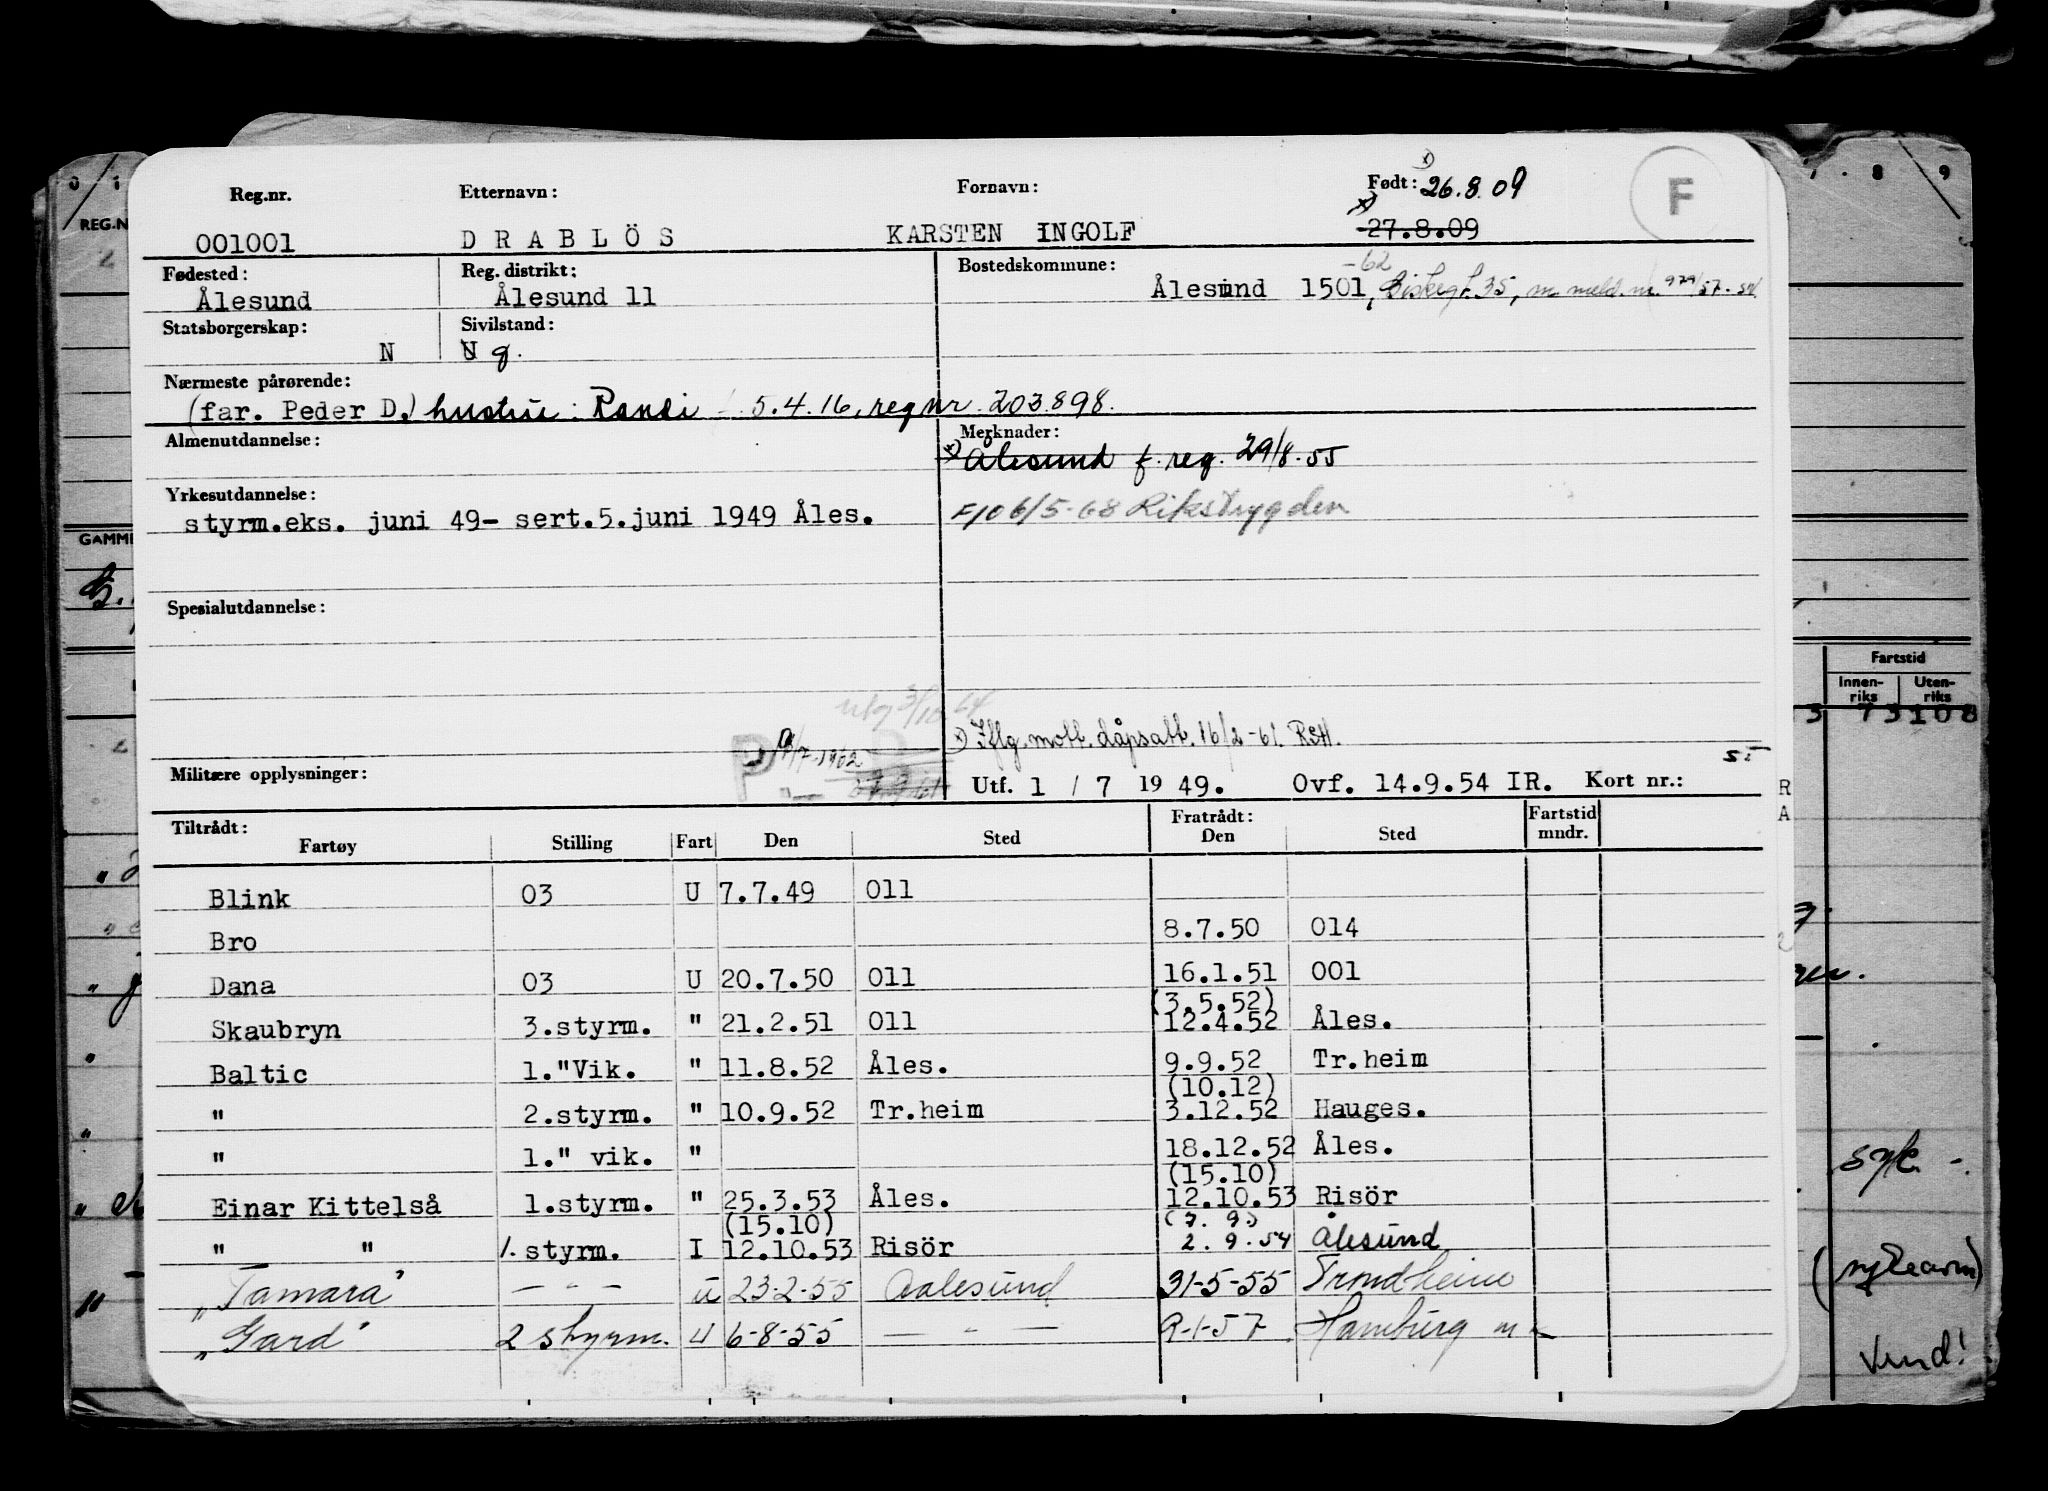 Reg.nr. Etternavn: Fornavn: Født: x) 26.8.09 F
001001 DRABLÖS KARSTEN INGOLF x) 27.8.09
Fødested: Reg. distrikt: Bostedskommune: -62
Ålesund Ålesund 11 Ålesund 1501, 35, m meld. nr. 979/57
Statsborgerskap: Sivilstand:
N U g.
Nærmeste pårørende:
(far. Peder D.) hustru: Randi 5.4.16, reg nr 203.898.
Almenutdannelse: Merknader:
x) Ålesund f. reg. 29/8.55
Yrkesutdannelse:
styrm.eks. juni 49- sert.5.juni 1949 Åles. F10 6/5-68 Rikstrygden
Spesialutdannelse:
utg 3/10 64
P 1/7-1962
x) Iflg. mott. dåpsatt. 16/2-61. RSH.
Militære opplysninger: Utf. 1 / 7 19 49. Ovf. 14.9.54 IR. Kort nr.:
Tiltrådt: Fratrådt: Fartstid
Fartøy Stilling Fart Den Sted Den Sted mndr.
Blink 03 U 7.7.49 011
Bro 8.7.50 014
Dana 03 U 20.7.50 011 16.1.51 001
(3.5.52)
Skaubryn 3.styrm. " 21.2.51 011 12.4.52 Åles.
Baltic 1."Vik. " 11.8.52 Åles. 9.9.52 Tr.heim
(10.12)
" 2.styrm. " 10.9.52 Tr.heim 3.12.52 Hauges.
" 1." vik. " 18.12.52 Åles.
(15.10)
Einar Kittelså 1.styrm. " 25.3.53 Åles. 12.10.53 Risör
(15.10) (7.9.)
" " 1. styrm. I 12.10.53 Risör 2.9.54 Ålesund
"Tamara" — " — u 23-2-55 Aalesund 31-5-55 Trondheim
"Gard" 2 styrm. u 6-8-55 — " — 9-1-57 Hamburg
0 1 8 9
REG.N
GAMME
Fartstid
Innen-
riks
Uten-
riks
3 73108
R
A
syk -.
(sykearm)
Vend!